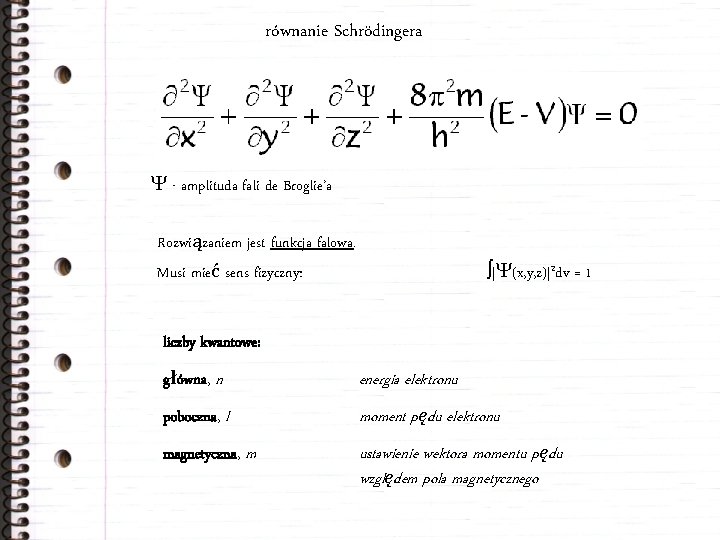 równanie Schrödingera
∂²Ψ/∂x² + ∂²Ψ/∂y² + ∂²Ψ/∂z² + 8π²m/h² (E - V)Ψ = 0
Ψ - amplituda fali de Broglie’a
Rozwiązaniem jest funkcja falowa.
Musi mieć sens fizyczny: ∫|Ψ(x,y,z)|²dv = 1
liczby kwantowe:
główna, n energia elektronu
poboczna, l moment pędu elektronu
magnetyczna, m ustawienie wektora momentu pędu
względem pola magnetycznego